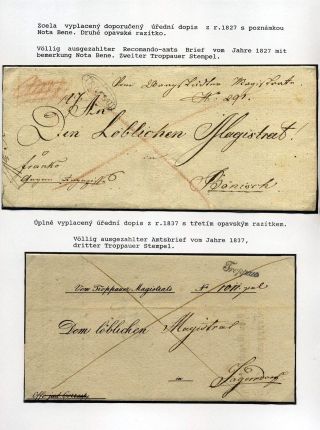 Zcela vyplacený doporučený úřední dopis z r.1827 s poznámkou
Nota Bene. Druhé opavské razítko.
Völlig ausgezahlter Recomando-amts Brief vom Jahre 1827 mit
bemerkung Nota Bene. Zweiter Troppauer Stempel.
Vom Magistrate
N. 291.
An
Den Löblichen Magistrat
franko
in
Bänisch
Úplně vyplacený úřední dopis z r.1837 s třetím opavským razítkem.
Völlig ausgezahlter Amtsbrief vom Jahre 1837,
dritter Troppauer Stempel.
Troppau
Vom Troppauer Magistrate
Dem löblichen Magistrat
in
Jägerndorf